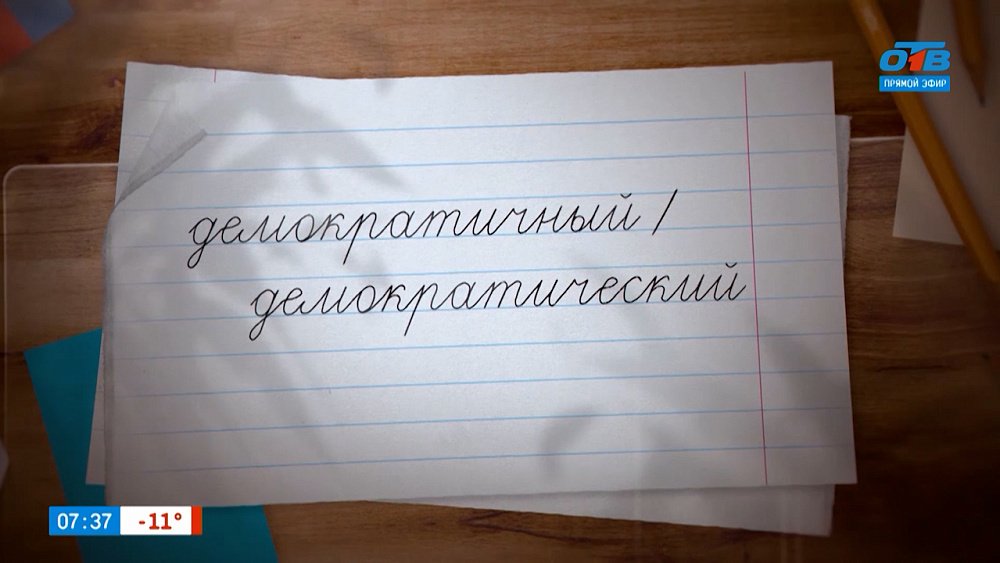 ОТВ
ПРЯМОЙ ЭФИР
демократичный /
демократический
07:37 -11°